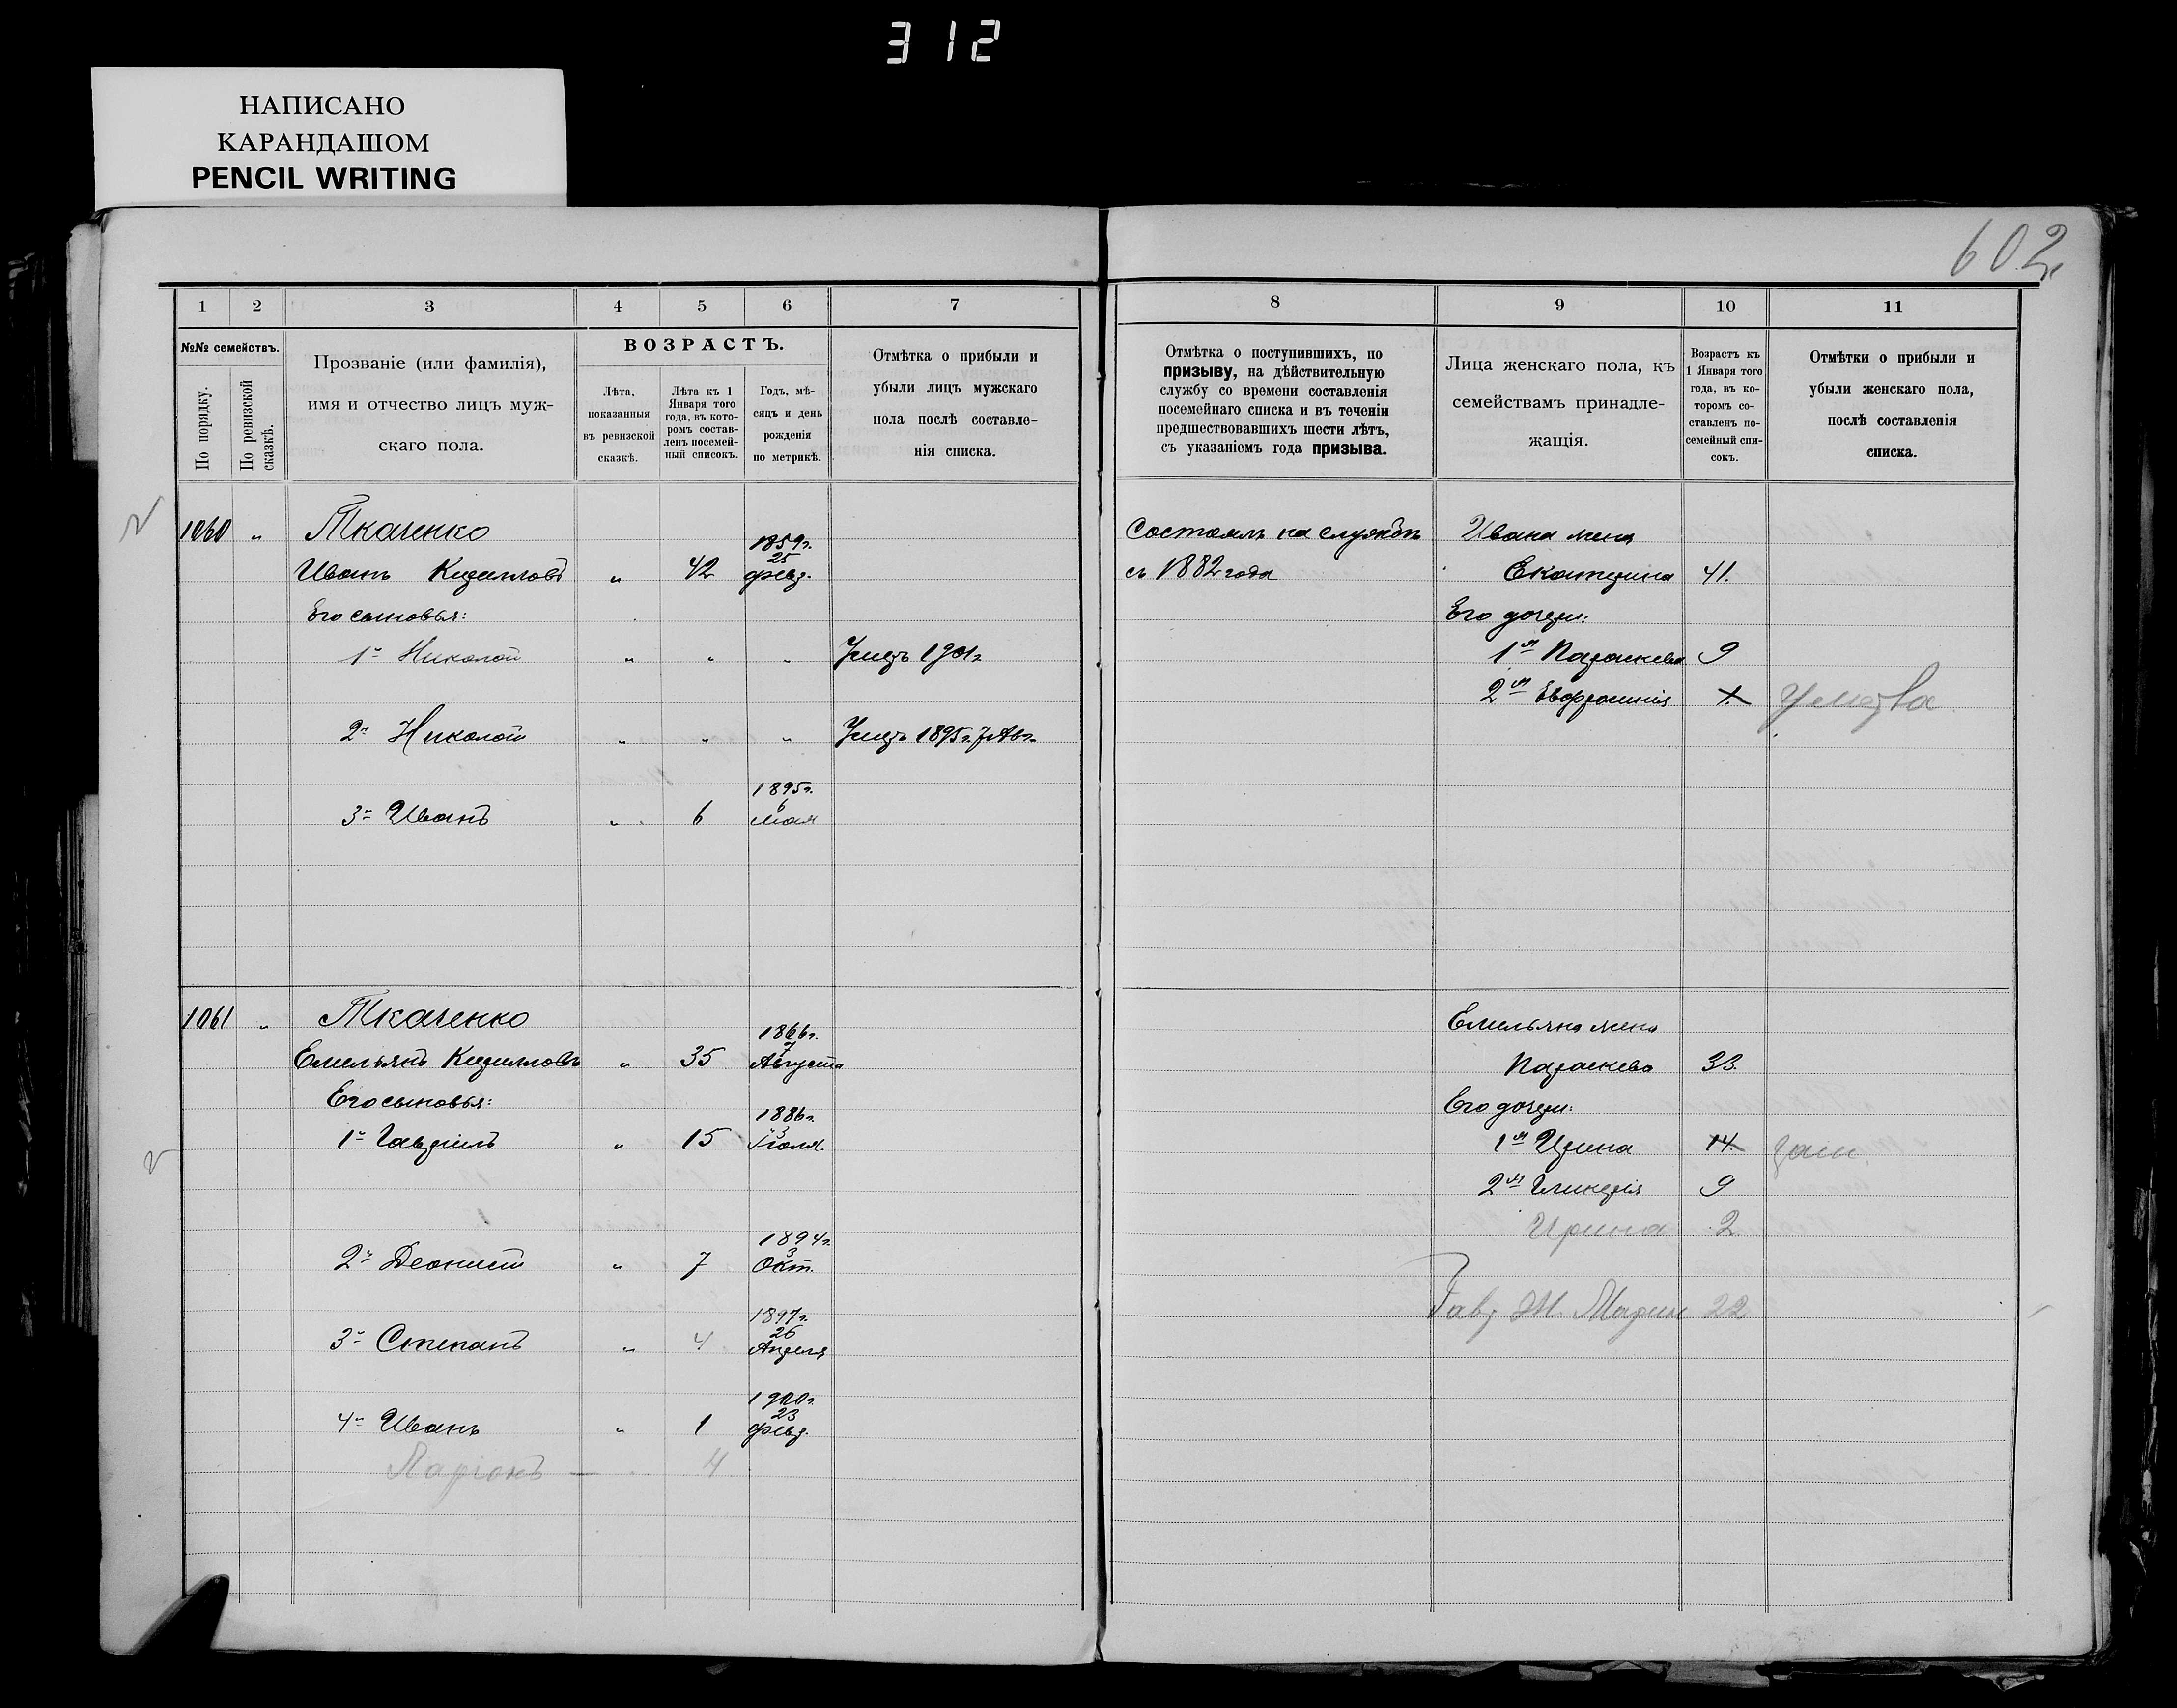 312
НАПИСАНО
КАРАНДАШОМ
PENCIL WRITING
602
1 2 3 4 5 6 7
№№ семействъ.
По порядку.
По ревизской сказкѣ.
Прозваніе (или фамилія),
имя и отчество лицъ муж-
скаго пола.
ВОЗРАСТЪ.
Лѣта,
показанныя
въ ревизской
сказкѣ.
Лѣта къ 1
Января того
года, въ кото-
ромъ состав-
ленъ посемей-
ный списокъ.
Годъ, мѣ-
сяцъ и день
рожденія
по метрикѣ.
Отмѣтка о прибыли и
убыли лицъ мужскаго
пола послѣ составле-
нія списка.
1060 " Ткаченко
1859г.
25
Иванъ Кирилловъ " 42 февр.
Его сыновья:
1й Николай " " " Умеръ 1901г
2й Николай " " " Умеръ 1895г. 7 Авг.
1895г.
6
3й Иванъ " 6 мая
1061 " Ткаченко
1866г.
7
Емельянъ Кирилловъ " 35 Августа
Его сыновья:
1886г.
1й Гавріилъ " 15 Іюля.
1894г.
3
2й Деонисій " 7 Окт.
1897г.
26
3й Степанъ " 4 Апреля
1900г.
23
4й Иванъ " 1 февр.
Ларіонъ — 4
8 9 10 11
Отмѣтка о поступившихъ, по
призыву, на дѣйствительную
службу со времени составленія
посемейнаго списка и въ теченіи
предшествовавшихъ шести лѣтъ,
съ указаніемъ года призыва.
Лица женскаго пола, къ
семействамъ принадле-
жащія.
Возрастъ къ
1 Января того
года, въ ко-
торомъ со-
ставленъ по-
семейный спи-
сокъ.
Отмѣтки о прибыли и
убыли женскаго пола,
послѣ составленія
списка.
Состоялъ на службѣ Ивана жена
съ 1882 года Екатерина 41.
Его дочери:
1я Параскева 9
2я Евфросинія 1. Умерла
Емельяна жена
Параскева 33.
Его дочери:
1я Ирина 14.
2я Гликерія 9
Ирина 2
Гавр. Ж. Марин 22